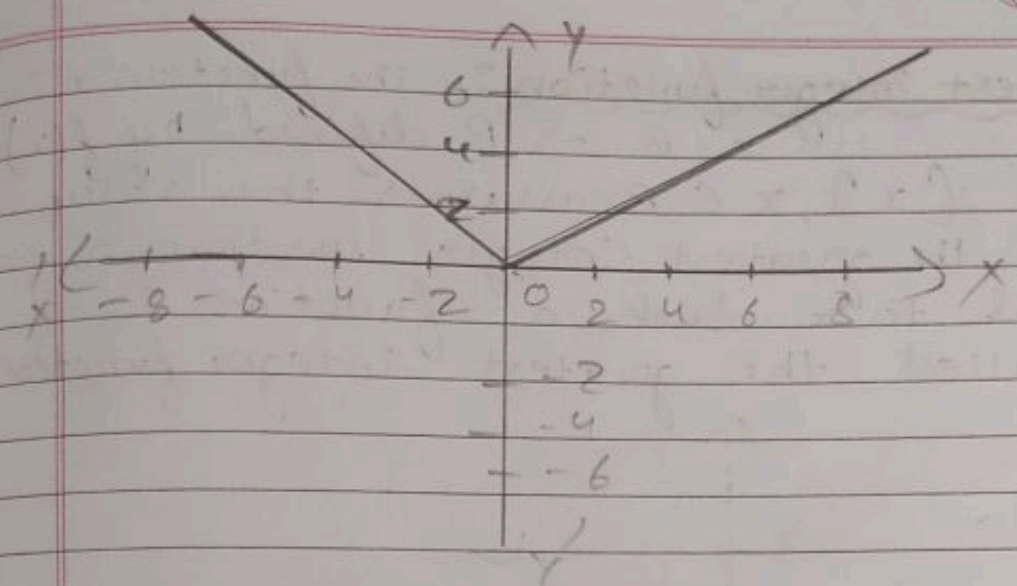 Y
6
4
2
X' -8 -6 -4 -2 0 2 4 6 8 X
-2
-4
-6
Y'